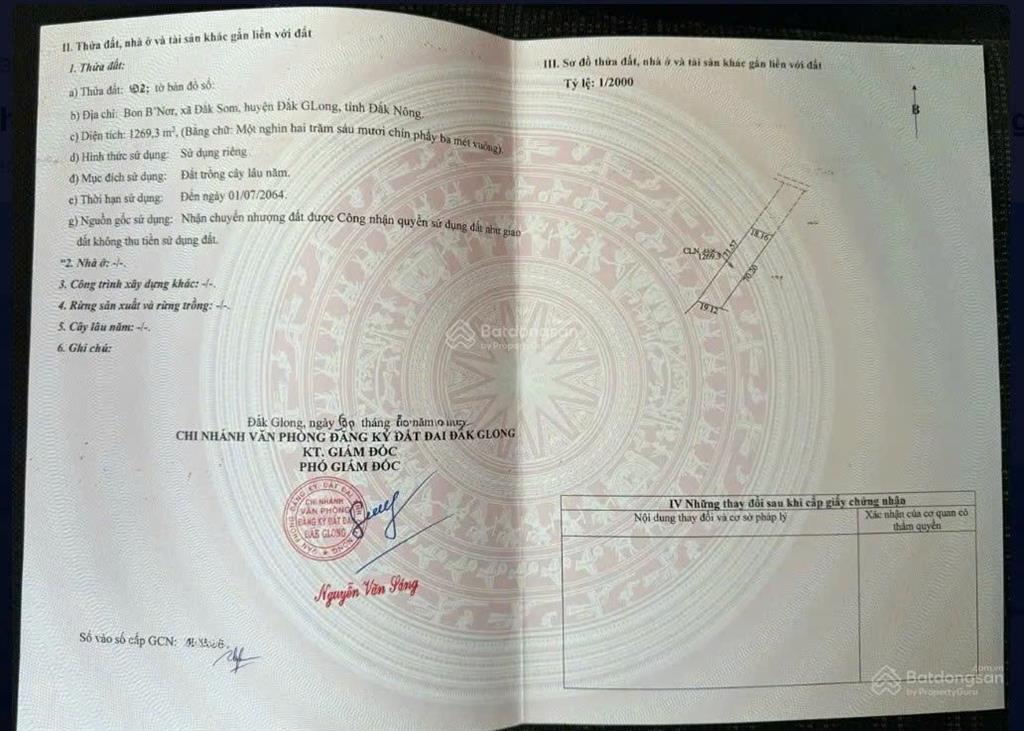 II. Thửa đất, nhà ở và tài sản khác gắn liền với đất
1. Thửa đất:
a) Thửa đất: tờ bản đồ số:
b) Địa chỉ: Bon B'Nơr, xã Đắk Som, huyện Đắk GLong, tỉnh Đắk Nông.
c) Diện tích: 1269,3 m², (Bằng chữ: Một nghìn hai trăm sáu mươi chín phẩy ba mét vuông).
d) Hình thức sử dụng: Sử dụng riêng
đ) Mục đích sử dụng: Đất trồng cây lâu năm.
e) Thời hạn sử dụng: Đến ngày 01/07/2064.
g) Nguồn gốc sử dụng: Nhận chuyển nhượng đất được Công nhận quyền sử dụng đất như giao
đất không thu tiền sử dụng đất.
"2. Nhà ở: -/-.
3. Công trình xây dựng khác: -/-.
4. Rừng sản xuất và rừng trồng: -/-.
5. Cây lâu năm: -/-.
6. Ghi chú:
Đắk Glong, ngày tháng năm
CHI NHÁNH VĂN PHÒNG ĐĂNG KÝ ĐẤT ĐAI ĐẮK GLONG
KT. GIÁM ĐỐC
PHÓ GIÁM ĐỐC
CHI NHÁNH
VĂN PHÒNG
ĐĂNG KÝ ĐẤT ĐAI
ĐẮK GLONG
Nguyễn Văn Sáng
Số vào sổ cấp GCN:
III. Sơ đồ thửa đất, nhà ở và tài sản khác gắn liền với đất
Tỷ lệ: 1/2000
B
18.16
CLN
1269.3
71.57
70.20
19.12
Batdongsan
by PropertyGuru
IV Những thay đổi sau khi cấp giấy chứng nhận
Nội dung thay đổi và cơ sở pháp lý
Xác nhận của cơ quan có
thẩm quyền
Batdongsan
.com.vn
by PropertyGuru